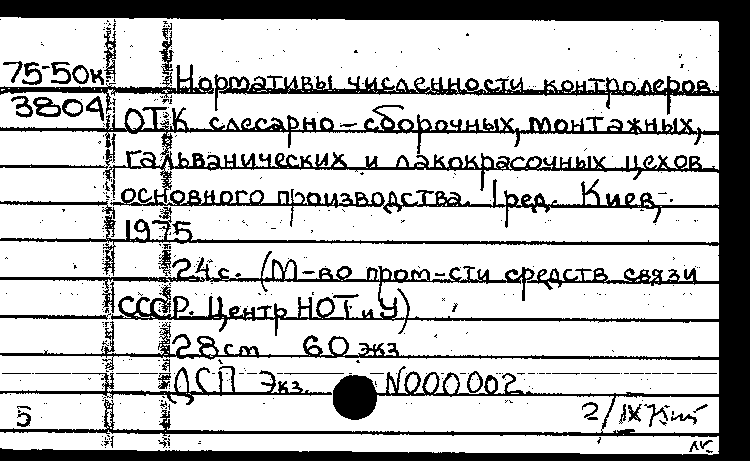 75-50к
3804
Нормативы численности контролеров
ОТК слесарно-сборочных, монтажных,
гальванических и лакокрасочных цехов
основного производства. 1 ред. Киев,
1975
24с. (М-во пром-сти средств связи
СССР. Центр НОТиУ)
28см 60 экз
ДСП Экз. N000002.
5
2/IX